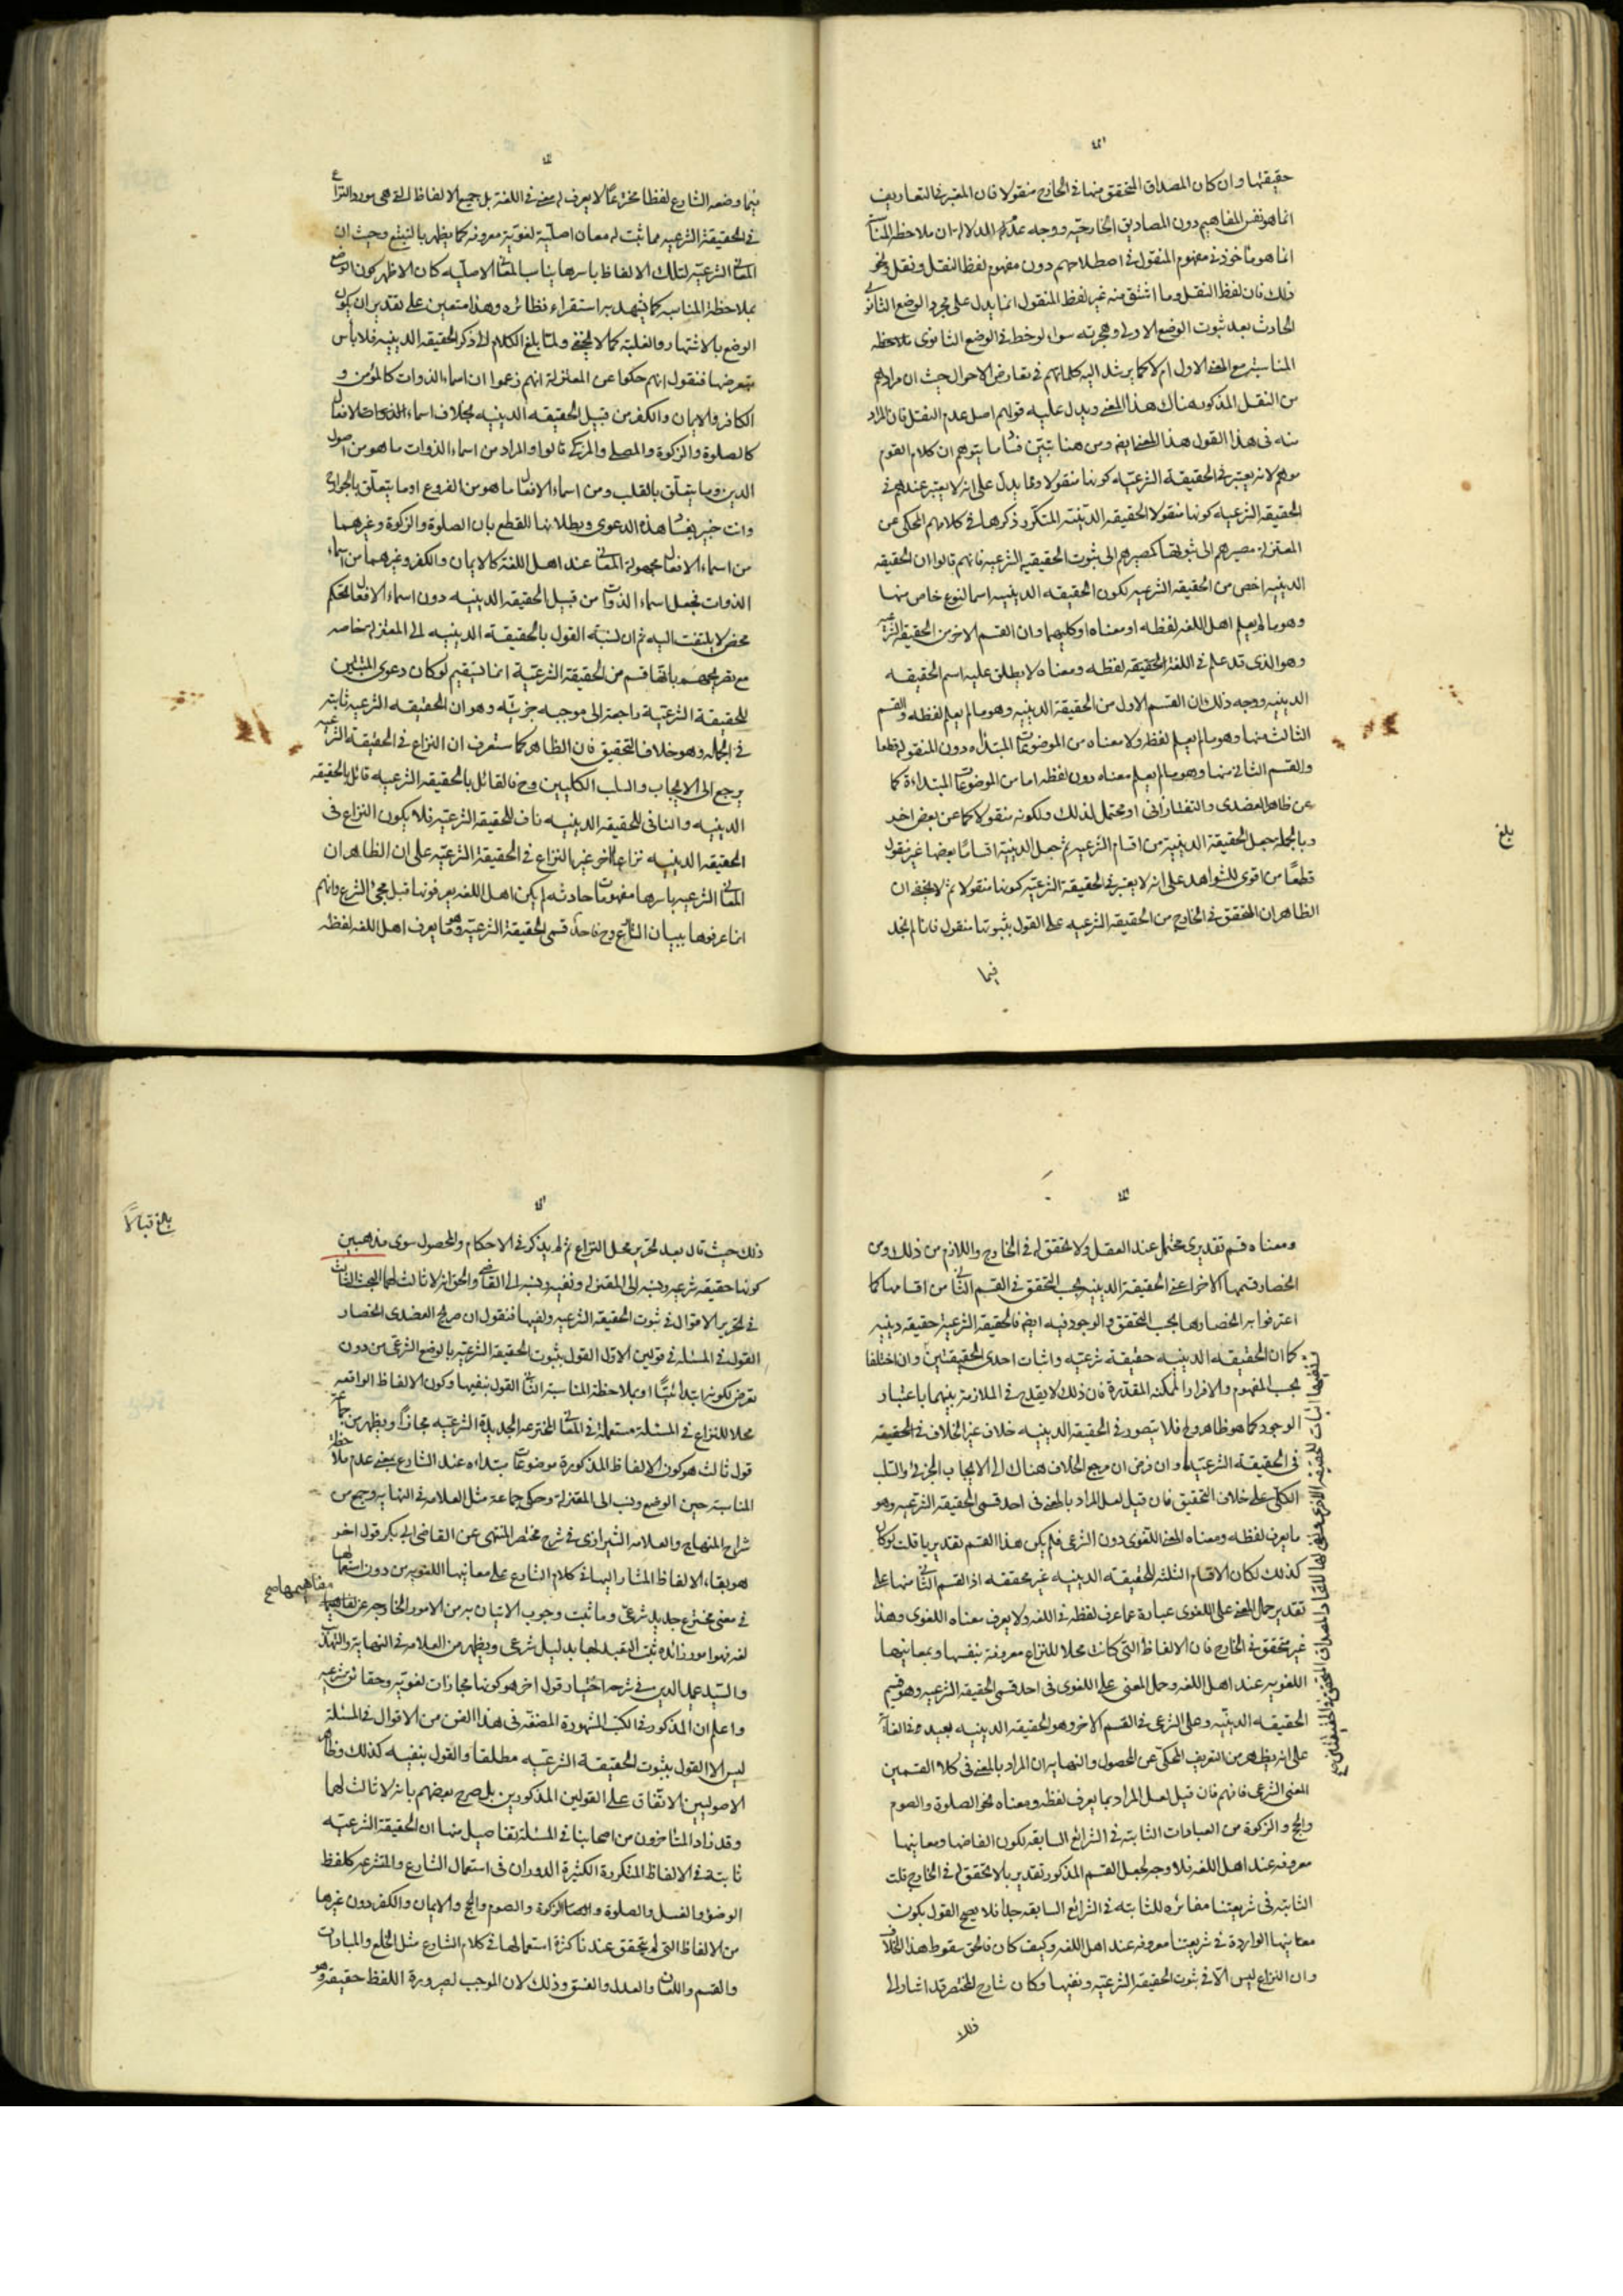 حقيقتها وان كان المصداق المتحقق منها في الخارج منقولا فان المعتبر في التعاريف
انما هو نفس المفاهيم دون المصاديق الخارجية ووجه عدم الدلالة ان ملاحظة المناسبة
انما هو مأخوذ في مفهوم المنقول في اصطلاحهم دون مفهوم لفظ النقل ونقل ونحو
ذلك فان لفظ النقل وما اشتق منه غير لفظ المنقول انما يدل على مجرد الوضع الثانوي
الحادث بعد ثبوت الوضع الاولى وهجرته سواء لوحظ في الوضع الثانوى ملاحظة
المناسبة مع المعنى الاول ام لا كما يرشد اليه كلماتهم في تعارض الاحوال حيث ان مرادهم
من النقل المذكور هناك هذا المعنى ويدل عليه قولهم اصل عدم النقل فان المراد
منه في هذا القول هذا المعنى ايضا ومن هنا تبين فساد ما يتوهم ان كلام القوم
موهم لانه يعتبر في الحقيقة الشرعية كونها منقولا ومما يدل على انه لا يعتبر عندهم في
الحقيقة الشرعية كونها منقولا الحقيقة الدينية المتكرر ذكرها في كلامهم المحكى عن
المعتزلة مصيرهم الى ثبوتها كمصيرهم الى ثبوت الحقيقة الشرعية فانهم قالوا ان الحقيقة
الدينية اخص من الحقيقة الشرعية لكون الحقيقة الدينية اسما لنوع خاص منها
وهو ما لم يعلم اهل اللغة لفظه او معناه او كليهما وان القسم الاخر من الحقيقة الشرعية
وهو الذى قد علم في اللغة الحقيقة لفظه ومعناه لا يطلق عليه اسم الحقيقة
الدينية ووجه ذلك ان القسم الاول من الحقيقة الدينية وهو ما لم يعلم لفظه والقسم
الثالث منها وهو ما لم يعلم لفظه ولا معناه من الموضوعات المبتدأة دون المنقولة قطعا
والقسم الثاني منها وهو ما لم يعلم معناه دون لفظه اما من الموضوعات المبتداءة كما
عن ظاهر العضدى والتفتازانى او محتمل لذلك ولكونه منقولا كما عن بعض اخر
وبالجملة جعل الحقيقة الدينية من اقسام الشرعية ثم جعل الدينية اقساما بعضها غير منقول
قطعًا من اقوى الشواهد على انه لا يعتبر في الحقيقة الشرعية كونها منقولا ثم لا يخفى ان
الظاهر ان المتحقق في الخارج من الحقيقة الشرعية على القول بثبوتها منقول فانا لم نجد
فيما
بلغ
فيما وضعه الشارع لفظا مخترعًا لا يعرف له معنى في اللغة بل جميع الالفاظ التي هي مورد النزاع
في الحقيقة الشرعية مما ثبت له معان اصلية لغوية معروفة كما يظهر بالتتبع وحيث ان
المعاني الشرعية لتلك الالفاظ باسرها يناسب المعاني الاصلية كان الاظهر كون الوضع
بملاحظة المناسبة كما يشهد به استقراء نظائره وهذا متعين على تقدير ان يكون
الوضع بالاشتهار والغلبة كما لا يخفى ولما بلغ الكلام الى ذكر الحقيقة الدينية فلا بأس
بتعرضها فنقول انهم حكوا عن المعتزلة انهم زعموا ان اسماء الذوات كالمؤمن و
الكافر والايمان والكفر من قبيل الحقيقة الدينية بخلاف اسماء الافعال
كالصلوة والزكوة والمصلى والمزكى قالوا والمراد من اسماء الذوات ما هو من اصول
الدين وما يتعلق بالقلب ومن اسماء الافعال ما هو من الفروع او ما يتعلق بالجوارح
وانت خبير بفساد هذه الدعوى وبطلانها للقطع بان الصلوة والزكوة وغيرهما
من اسماء الافعال مجهولة المعاني عند اهل اللغة كالايمان والكفر وغيرهما من اسماء
الذوات فجعل اسماء الذوات من قبيل الحقيقة الدينية دون اسماء الافعال تحكم
محض لا يلتفت اليه ثم ان نسبة القول بالحقيقة الدينية الى المعتزلة خاصة
مع تصريحهم بانها قسم من الحقيقة الشرعية انما تستقيم لو كان دعوى المثبتين
للحقيقة الشرعية راجعة الى موجبة جزئية وهو ان الحقيقة الشرعية ثابتة
في الجملة وهو خلاف التحقيق فان الظاهر كما ستعرف ان النزاع في الحقيقة الشرعية
يرجع الى الايجاب والسلب الكليين وح فالقائل بالحقيقة الشرعية قائل بالحقيقة
الدينية والنافى للحقيقة الدينية ناف للحقيقة الشرعية فلا يكون النزاع في
الحقيقة الدينية نزاعا اخر غير النزاع في الحقيقة الشرعية على ان الظاهر ان
المعاني الشرعية باسرها مفهومات حادثة لم يكن اهل اللغة يعرفونها قبل مجئ الشرع وانهم
انما عرفوها ببيان الشارع وح فاحد قسمى الحقيقة الشرعية وهو ما يعرف اهل اللغة لفظه
ومعناه قسم تقديرى محتمل عند العقل ولا تحقق له في الخارج واللازم من ذلك ومن
انحصار قسمها الاخر اعنى الحقيقة الدينية بحسب التحقق في القسم الثاني من اقسامها كما
اعترفوا به انحصارها بحسب التحقق والوجود فيه ايضا فالحقيقة الشرعية حقيقة دينية
كما ان الحقيقة الدينية حقيقة شرعية واثبات احدى الحقيقتين وان اختلفا
بحسب المفهوم والافراد الممكنة المقدرة فان ذلك لا يقدح في الملازمة بينهما باعتبار
الوجود كما هو ظاهر وح فلا يتصور في الحقيقة الدينية خلاف غير الخلاف في الحقيقة
في الحقيقة الشرعية وان فرض ان مرجع الخلاف هناك الى الايجاب الجزئى والسلب
الكلى على خلاف التحقيق فان قيل لعل المراد بالمعنى في احد قسمى الحقيقة الشرعية وهو
ما يعرف لفظه ومعناه المعنى اللغوى دون الشرعى فلم يكن هذا القسم تقديريا قلت لو كان
كذلك لكان الاقسام الثلثة للحقيقة الدينية غير محققة اذ القسم الثاني منها على
تقدير حمل المعنى على اللغوى عبارة عما عرف لفظه في اللغة ولا يعرف معناه اللغوى وهذا
غير متحقق في الخارج فان الالفاظ التي كانت محلا للنزاع معروفة بنفسها وبمعانيها
اللغوية عند اهل اللغة وحمل المعنى على اللغوى في احد قسمى الحقيقة الشرعية وهو قسيم
الحقيقة الدينية وعلى الشرعى في القسم الاخر وهو الحقيقة الدينية بعيد في الغاية
على انه يظهر من التعريف المحكى عن المحصول والنهاية ان المراد بالمعنى في كلا القسمين
المعنى الشرعى فافهم فان قيل لعل المراد بما يعرف لفظه ومعناه نحو الصلوة والصوم
والحج والزكوة من العبادات الثابتة في الشرائع السابقة لكون الفاظها ومعانيها
معروفة عند اهل اللغة فلا وجه لجعل القسم المذكور تقديريا لا تحقق له في الخارج قلت
الثابتة في شريعتنا مغائرة للثابتة في الشرائع السابقة جدا فلا يصح القول بكون
معانيها الواردة في شريعتنا معروفة عند اهل اللغة وكيف كان فالحق سقوط هذا الخلاف
وان النزاع ليس الا في ثبوت الحقيقة الشرعية ونفيها وكان شارح المختصر قد اشار الى
ذلك
ذلك حيث قال بعد تحرير محل النزاع ثم لم يذكر في الاحكام والمحصول سوى مذهبين
كونها حقيقة شرعية ونسبه الى المعتزلة ونفيه ونسبه الى القاضي والحق انه لا ثالث لهما البحث الثالث
في تحرير الاقوال في ثبوت الحقيقة الشرعية ونفيها فنقول ان صريح العضدى انحصار
القول في المسئلة في قولين الاول القول بثبوت الحقيقة الشرعية بالوضع الشرعى من دون
تعرض لكونه ابتدائيًا او بملاحظة المناسبة الثاني القول بنفيها وكون الالفاظ الواقعة
محلا للنزاع في المسئلة مستعملة في المعاني المخترعة الجديدة الشرعية مجازًا ويظهر من جماعة
قول ثالث هو كون الالفاظ المذكورة موضوعات مبتداءه عند الشارع بمعنى عدم ملاحظة
المناسبة حين الوضع ونسب الى المعتزلة وحكى جماعة مثل العلامة في النهاية وجمع من
شراح المنهاج والعلامة الشيرازى في شرح مختصر المنتهى عن القاضى ابى بكر قول اخر
هو بقاء الالفاظ المشار اليها في كلام الشارع على معانيها اللغوية من دون استعمالها
في معنى مخترع جديد شرعى وما ثبت وجوب الاتيان به من الامور الخارجة عن مفاهيمها صح
لغة فهوا مور زائدة ثبت التقييد بها بدليل شرعى ويظهر من العلامة في النهاية والتهذيب
والسيد عميد الدين في شرحه اختيار قول اخر هو كونها مجازات لغوية وحقائق شرعية
واعلم ان المذكور في الكتب المشهورة المصنفة في هذا الفن من الاقوال في المسئلة
ليس الا القول بثبوت الحقيقة الشرعية مطلقا والقول بنفيه كذلك وظاهر
الاصوليين الاتفاق على القولين المذكورين بل صرح بعضهم بانه لا ثالث لهما
وقد زاد المتاخرون من اصحابنا في المسئلة تفاصيل منها ان الحقيقة الشرعية
ثابتة في الالفاظ المتكررة الكثيرة الدوران في استعمال الشارع والمتشرعة كلفظ
الوضؤ والغسل والصلوة والزكوة والصوم والحج والايمان والكفر دون غيرها
من الالفاظ التي لم يتحقق عندنا كثرة استعمالها في كلام الشارع مثل الخلع والمبارات
والقسم واللعان والعدد والفسق وذلك لان الموجب لصيرورة اللفظ حقيقة هو
بلغ قبالاً